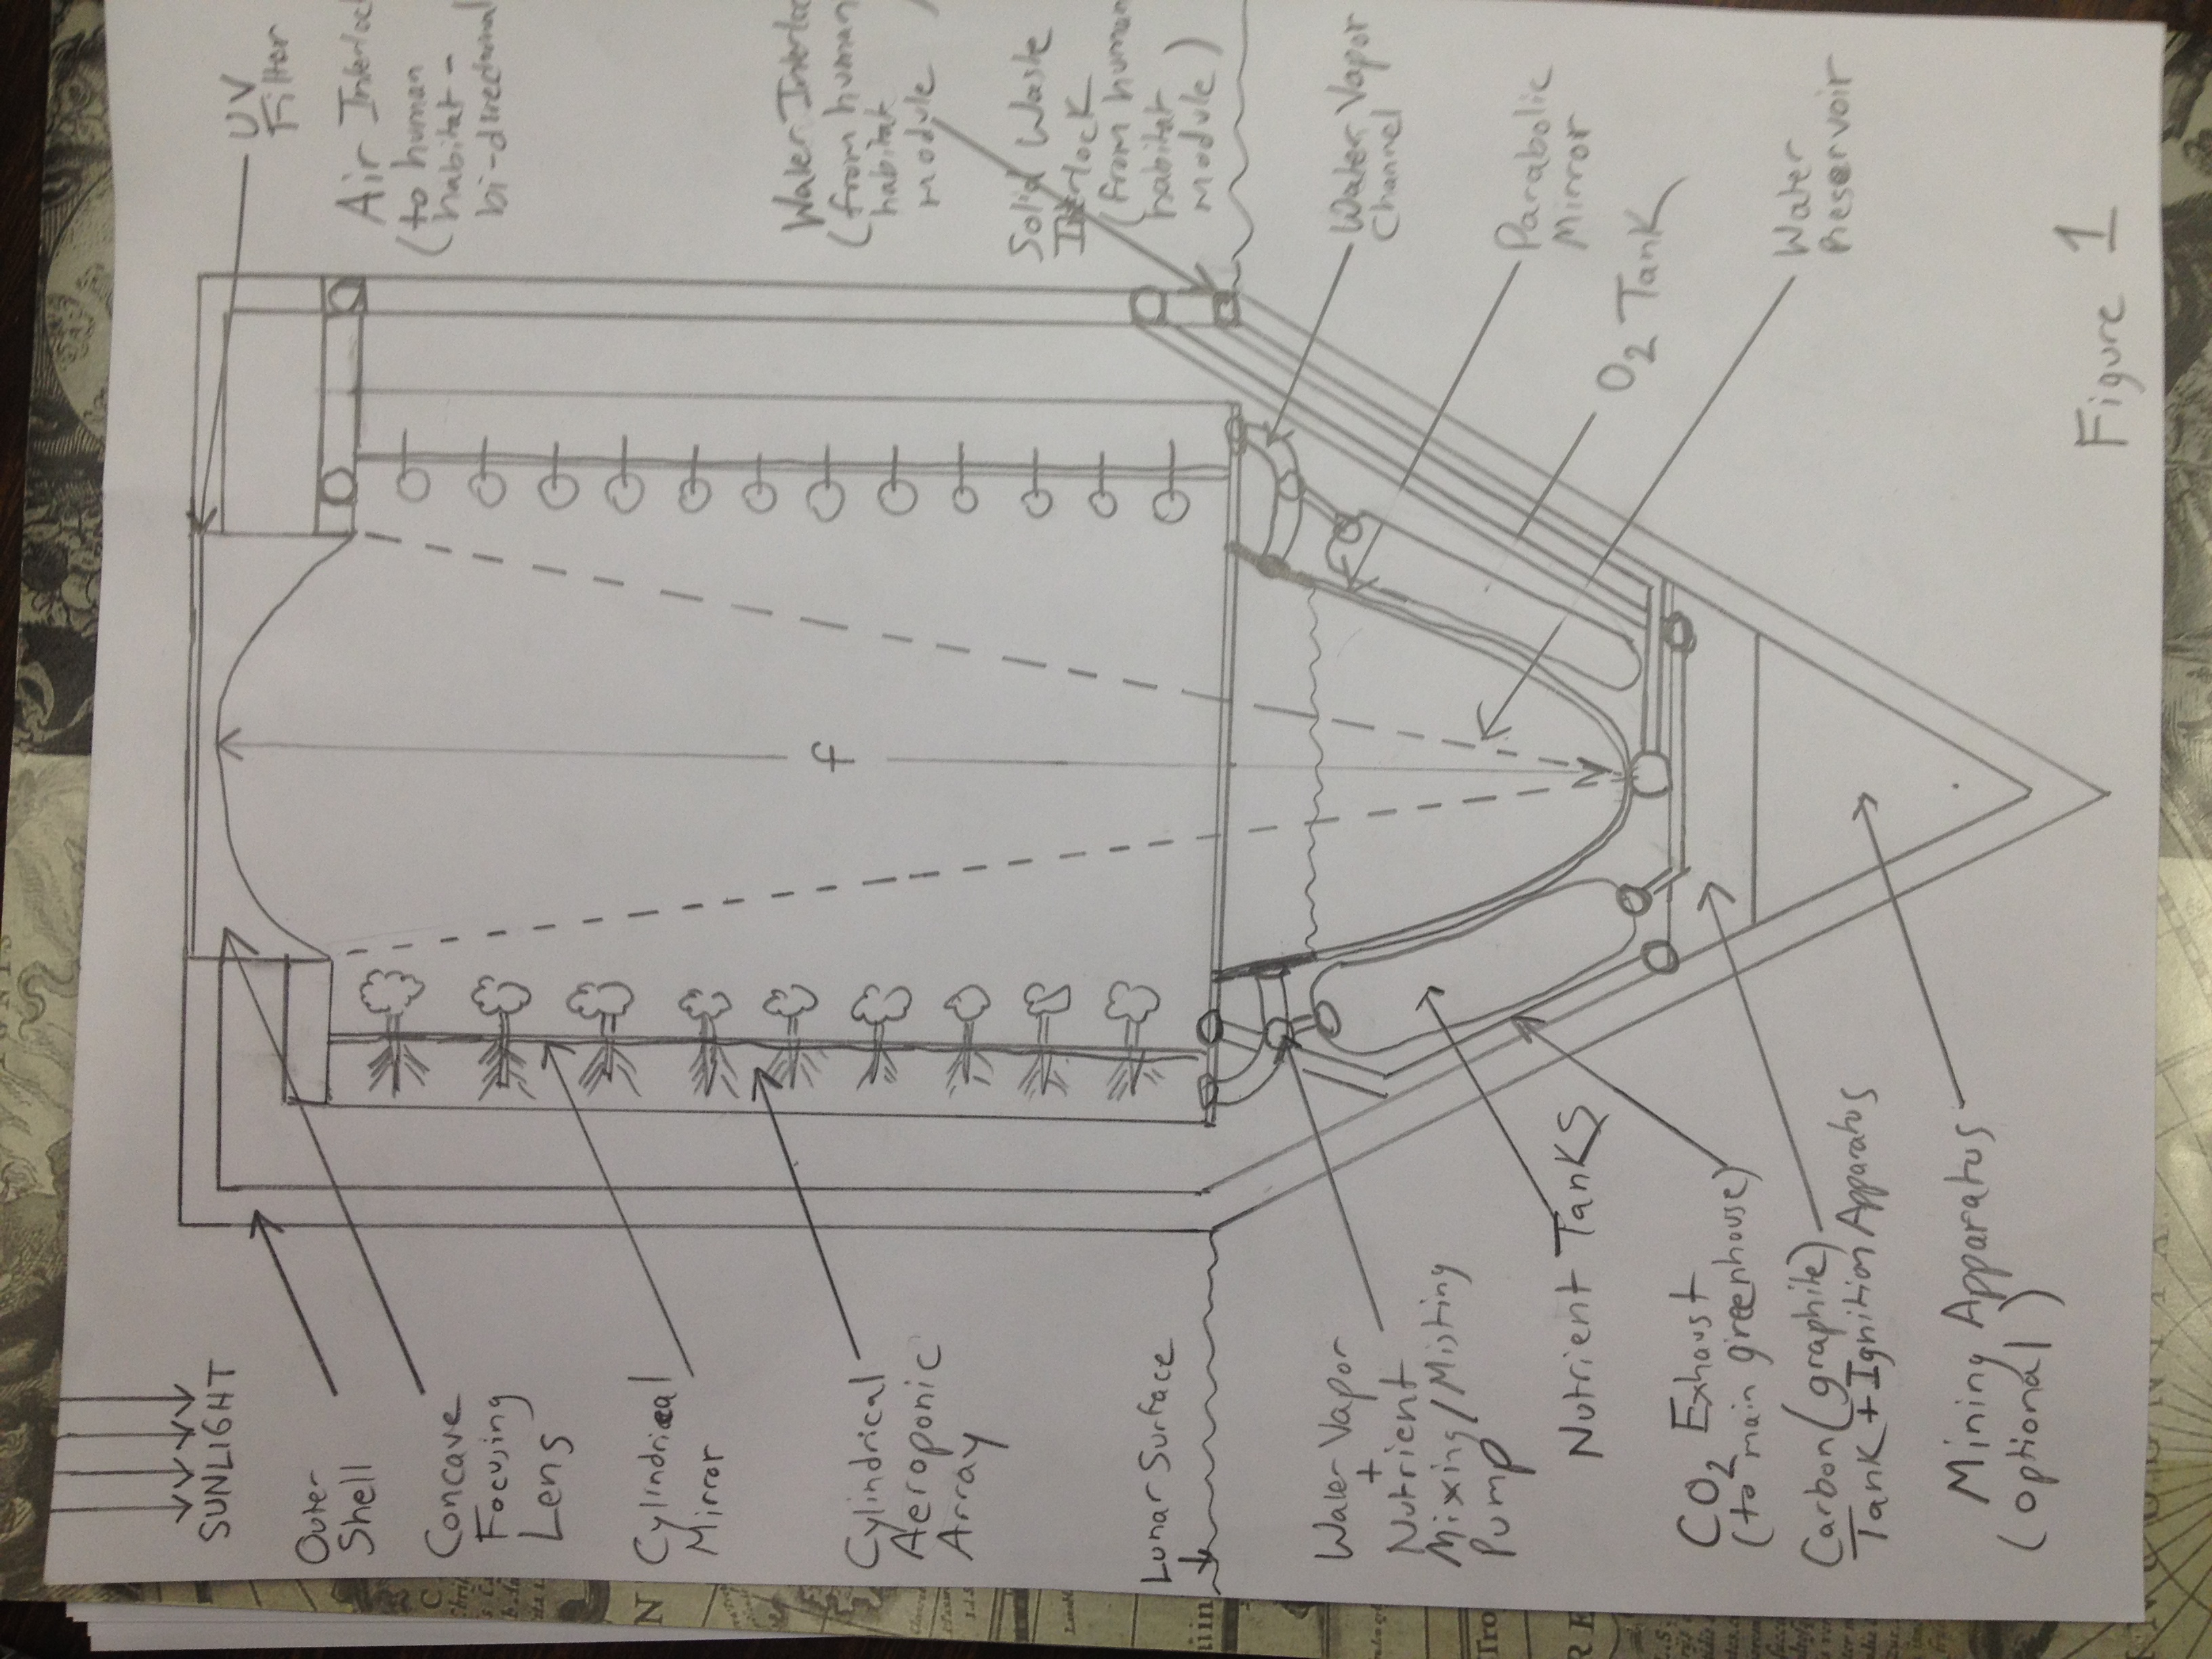 SUNLIGHT
Outer
Shell
Concave
Focusing
Lens
Cylindrical
Mirror
Cylindrical
Aeroponic
Array
Lunar Surface
Water Vapor
+
Nutrient
Mixing/Misting
Pump
Nutrient Tanks
CO2 Exhaust
(to main greenhouse)
Carbon (graphite)
Tank + Ignition Apparatus
Mining Apparatus
(optional)
f
UV
Filter
Air Interloc
(to human
habitat -
bi-directional
Water Interloc
(from human
habitat
module)
Solid Waste
Interlock
(from human
habitat
module)
Water Vapor
Channel
Parabolic
Mirror
O2 Tank
Water
Reservoir
Figure 1